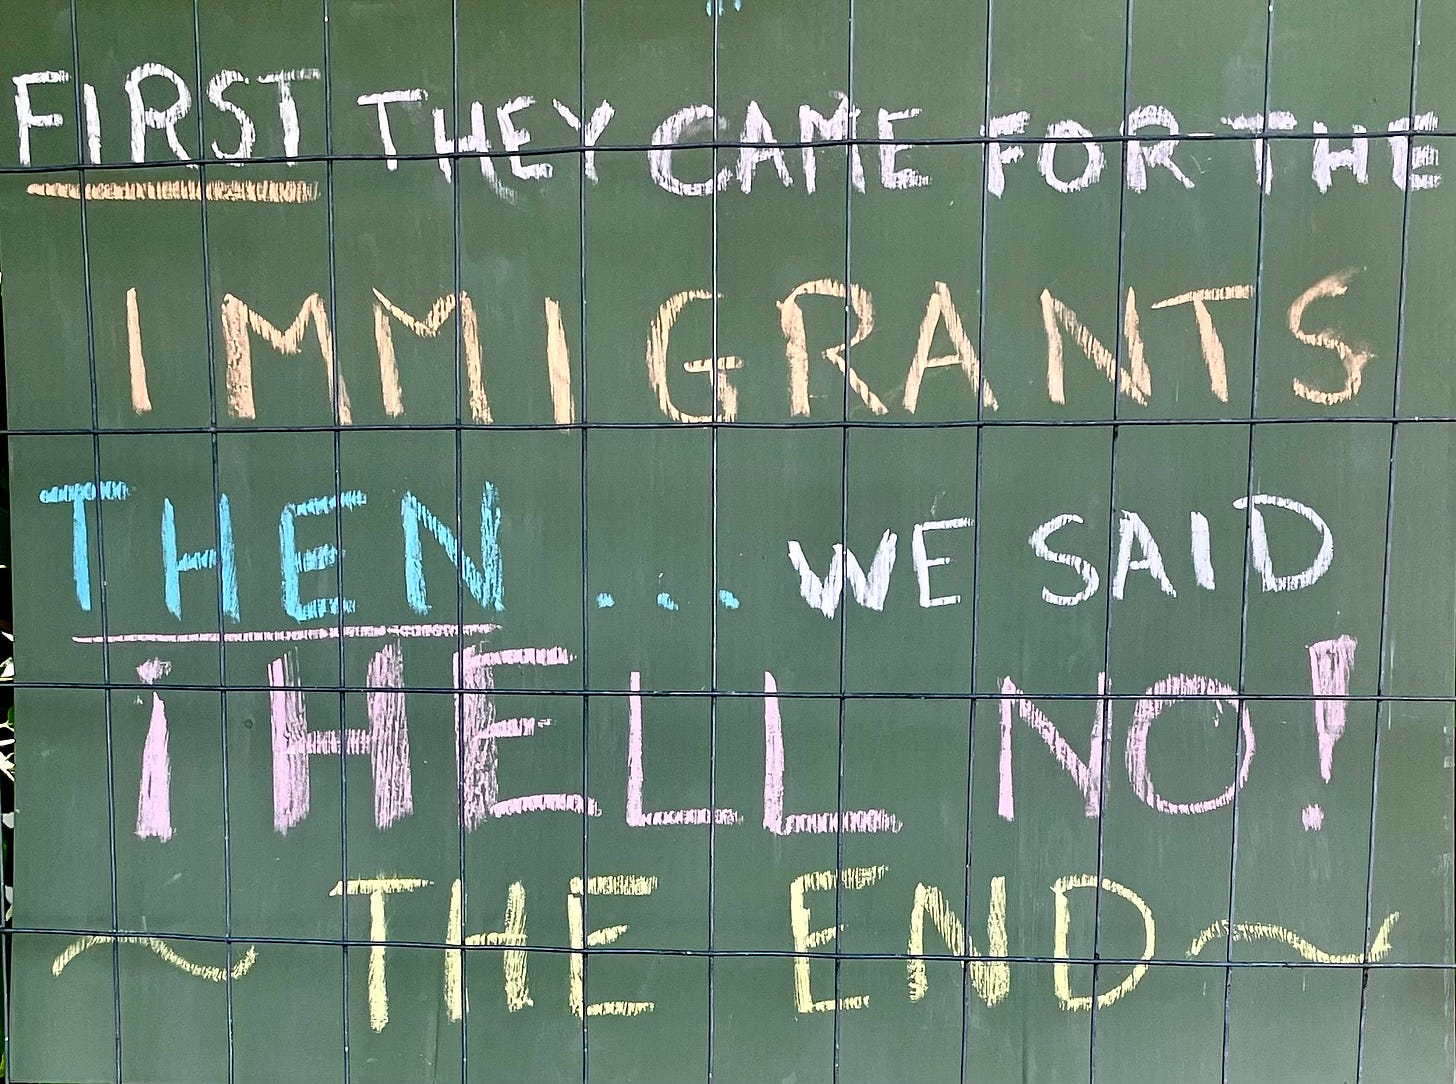 FIRST THEY CAME FOR THE
IMMIGRANTS
THEN ... WE SAID
¡HELL NO!
~ THE END ~